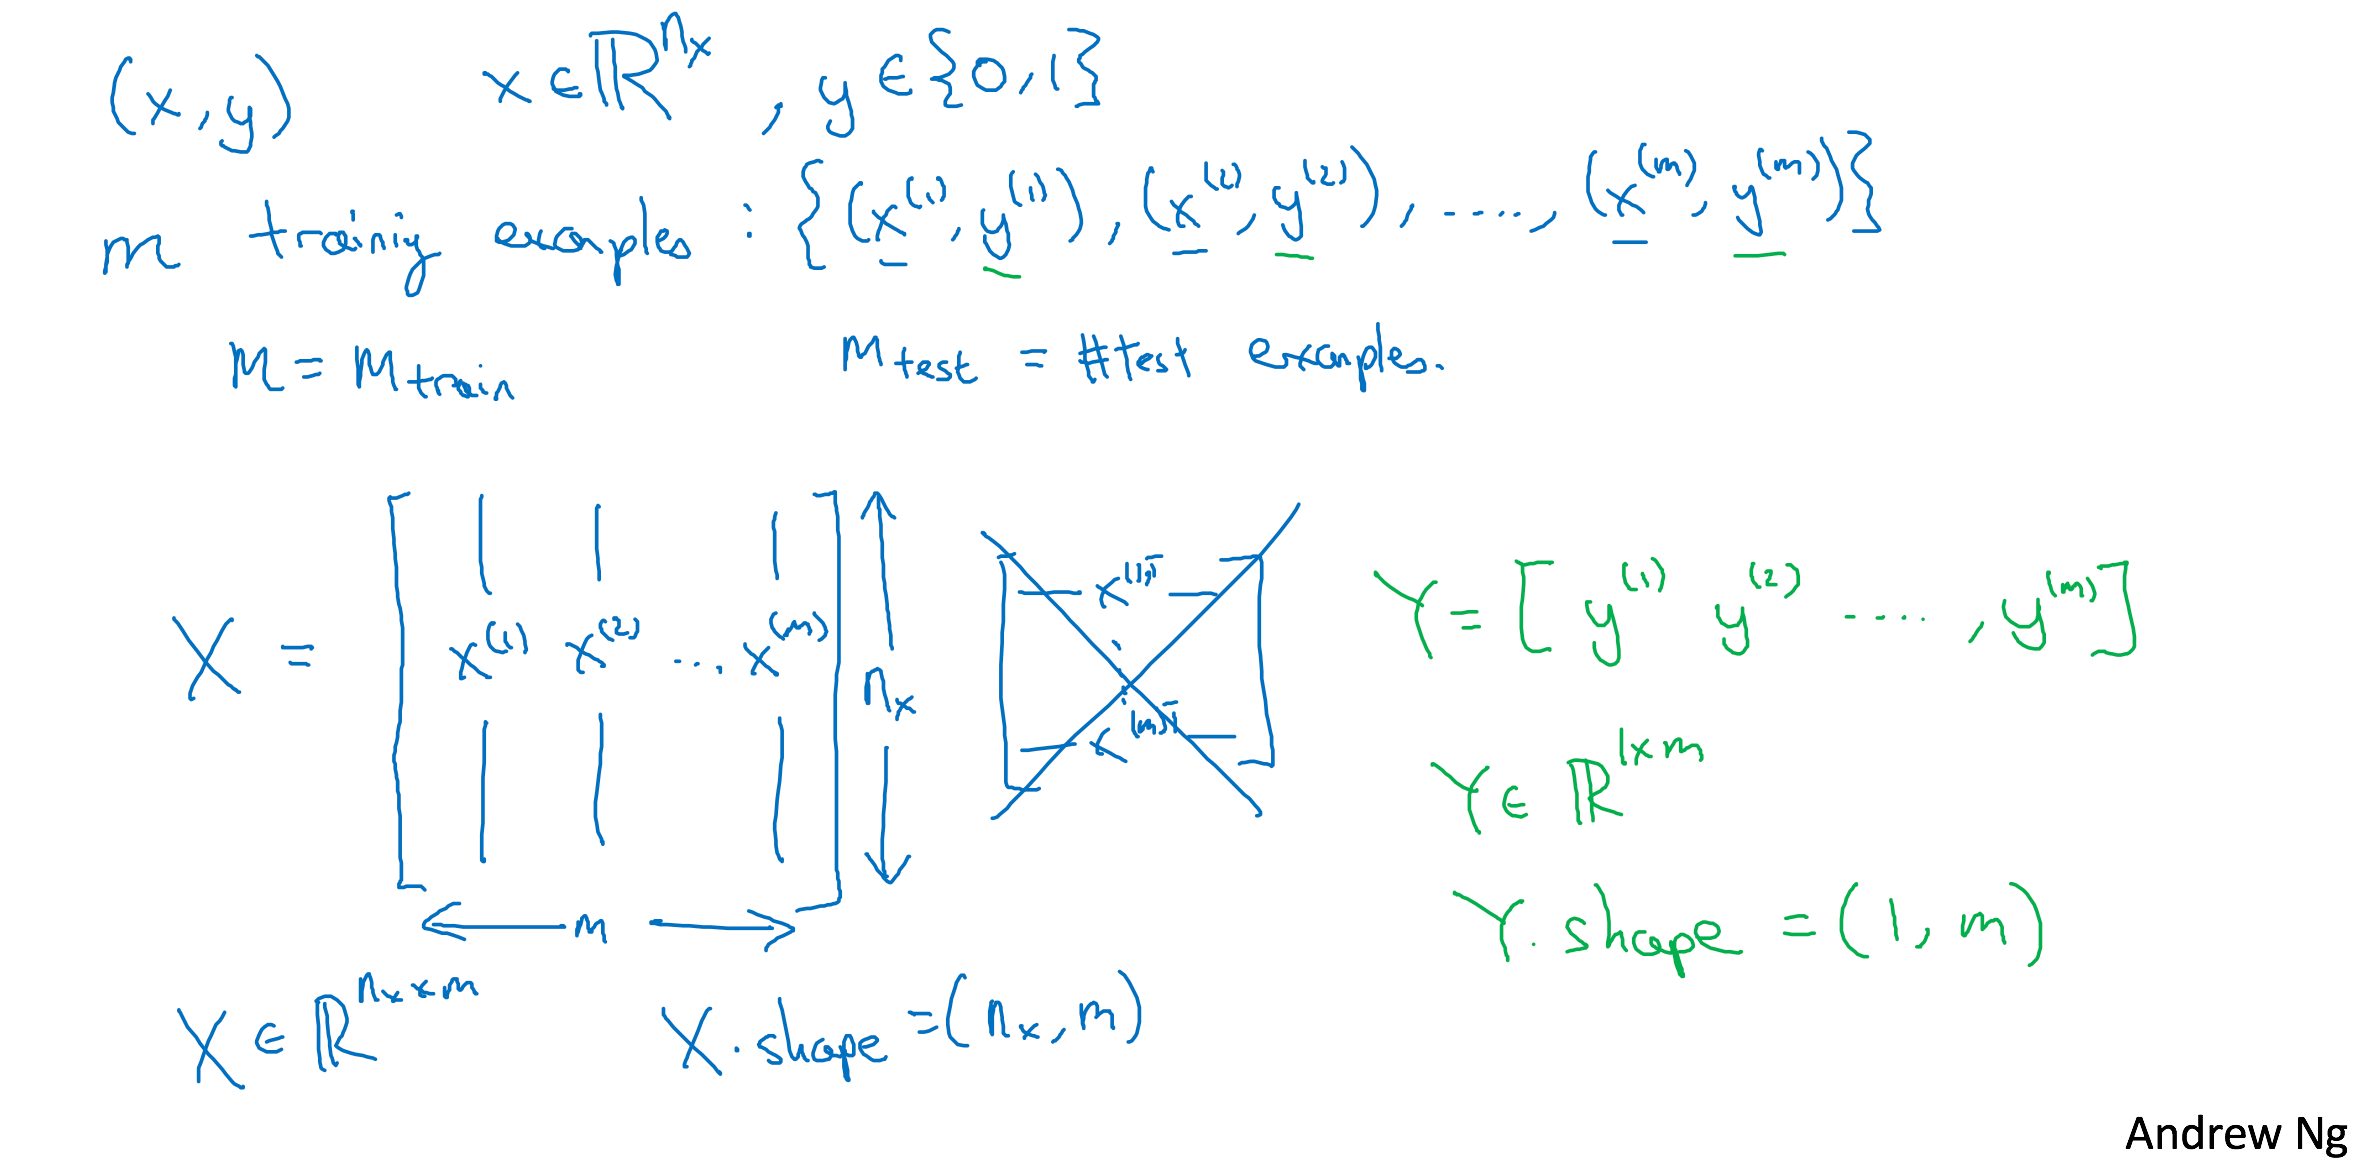 (x, y) x ∈ ℝ^{n_x}, y ∈ {0, 1}
m training examples : {(x^{(1)}, y^{(1)}), (x^{(2)}, y^{(2)}), ....., (x^{(m)}, y^{(m)})}
M = M_{train} M_{test} = #test examples.
X = [ x^{(1)} x^{(2)} ... x^{(m)} ] n_x
m
x^{(1)T}
⋮
x^{(m)T}
Y = [ y^{(1)} y^{(2)} ....., y^{(m)} ]
Y ∈ ℝ^{1×m}
Y.shape = (1, m)
X ∈ ℝ^{n_x × m} X.shape = (n_x, m)
Andrew Ng